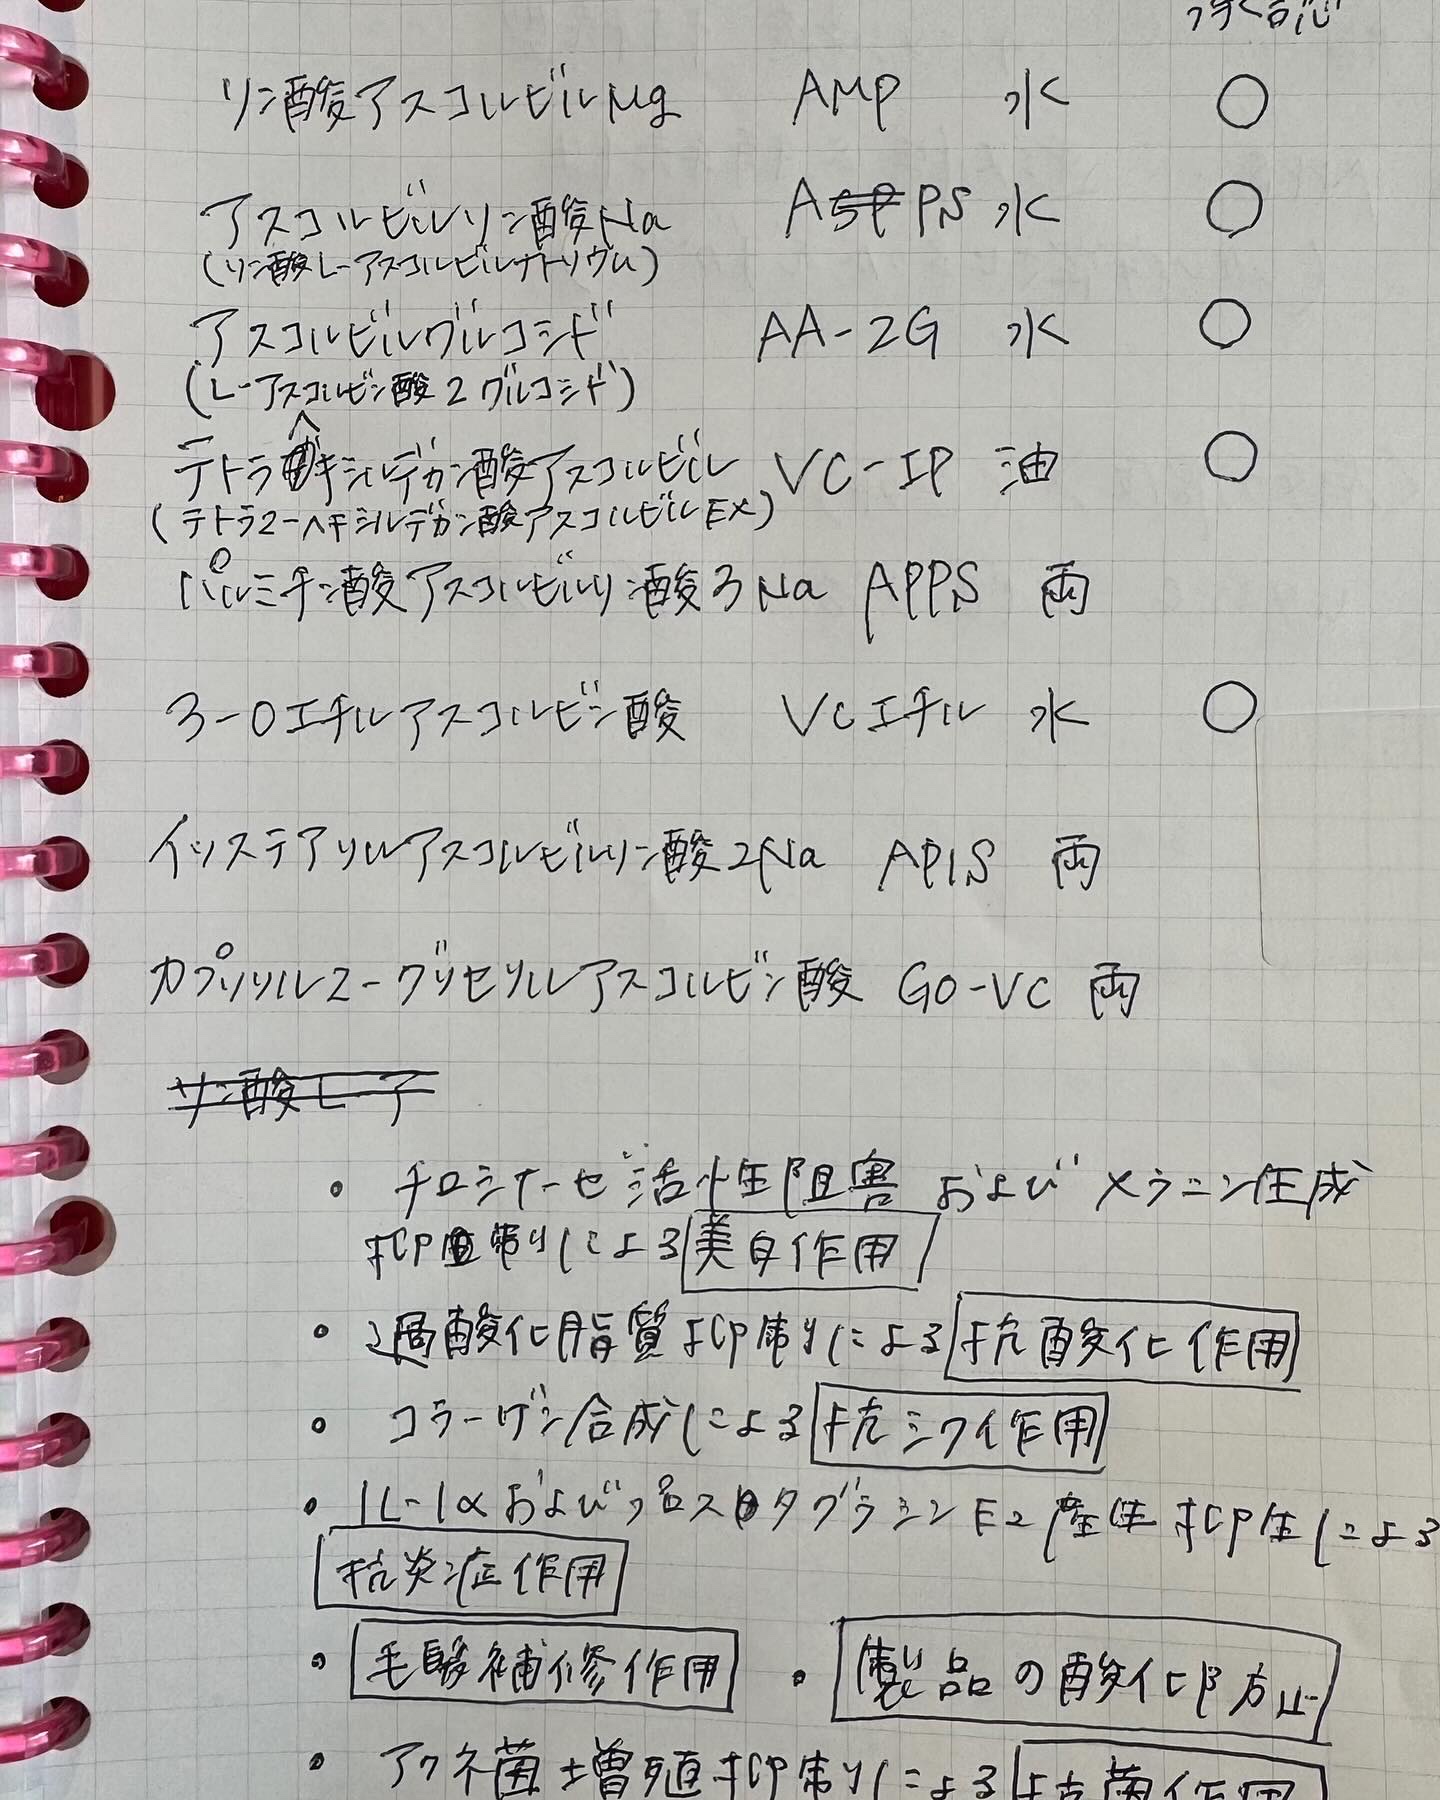 承認
リン酸アスコルビルMg AMP 水 ○
アスコルビルリン酸Na APS 水 ○
(リン酸L-アスコルビルナトリウム)
アスコルビルグルコシド AA-2G 水 ○
(L-アスコルビン酸2グルコシド)
テトラヘキシルデカン酸アスコルビル VC-IP 油 ○
(テトラ2-ヘキシルデカン酸アスコルビルEX)
パルミチン酸アスコルビルリン酸3Na APPS 両
3-Oエチルアスコルビン酸 VCエチル 水 ○
イソステアリルアスコルビルリン酸2Na APIS 両
カプリリル2-グリセリルアスコルビン酸 GO-VC 両
リン酸L-ア
・チロシナーゼ活性阻害 および メラニン生成
抑制による美白作用
・過酸化脂質抑制による抗酸化作用
・コラーゲン合成による抗シワ作用
・IL-1αおよびプロスタグランジンE2産生抑制による
抗炎症作用
・毛髪補修作用 ・製品の酸化防止
・アクネ菌増殖抑制による抗菌作用